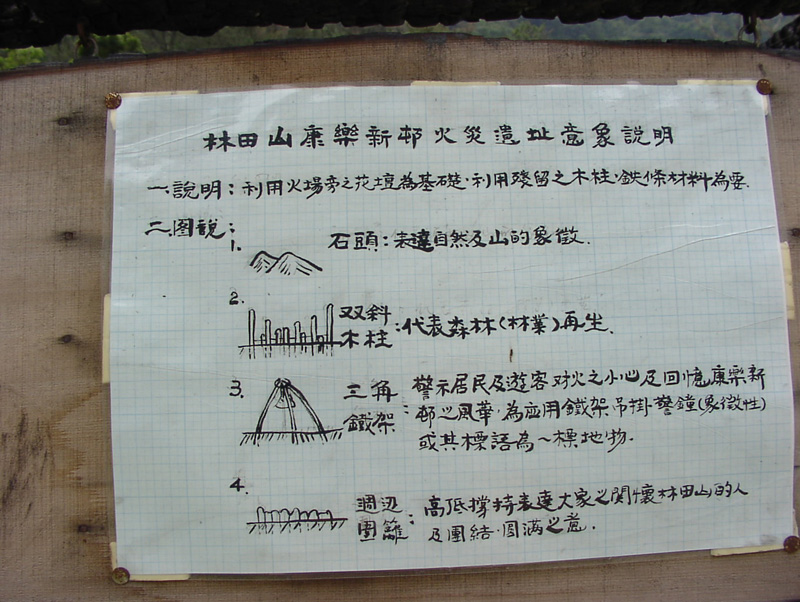 林田山康樂新邨火災遺址意象說明
一.說明:利用火場旁之花壇為基礎.利用殘留之木柱.鉄條材料為要.
二.圖說:
1. 石頭:表達自然及山的象徵.
2. 双斜木柱:代表森林(林業)再生.
3. 三角鐵架:警示居民及遊客对火之小心及回憶康樂新
邨之風華.為应用鐵架吊掛警鐘(象徵性)
或其標語為一標地物.
4. 週边圍籬:高低撐持表達大家之関懷林田山的人
及團結.圓滿之意.